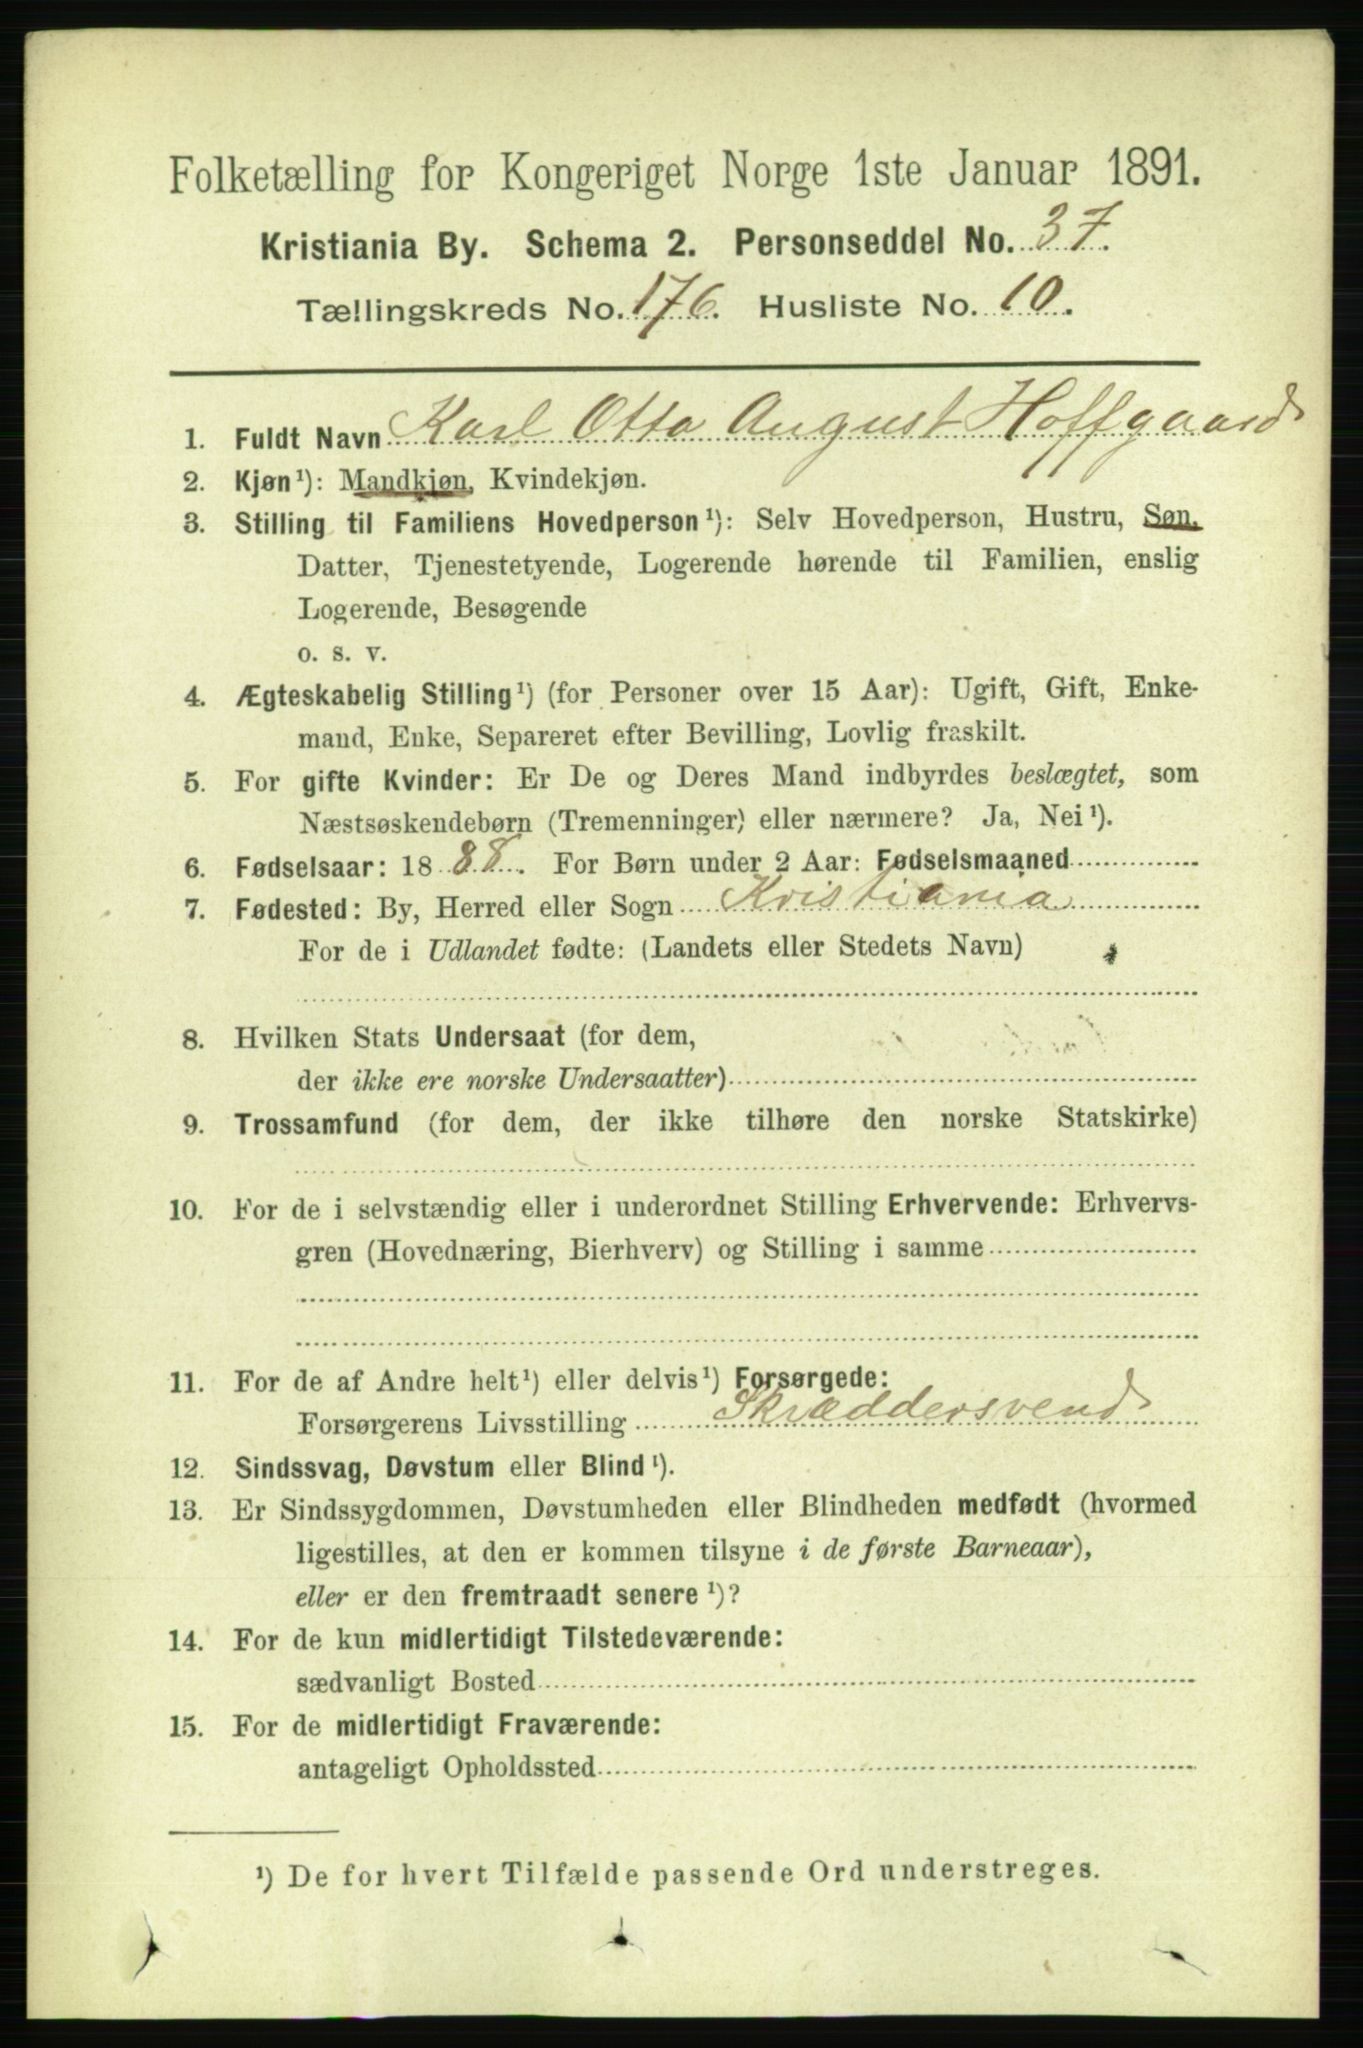 Folketælling for Kongeriget Norge 1ste Januar 1891.
Kristiania By. Schema 2. Personseddel No. 37.
Tællingskreds No. 176. Husliste No. 10.
1. Fuldt Navn Karl Otto August Hoffgaard
2. Kjøn¹): Mandkjøn, Kvindekjøn.
3. Stilling til Familiens Hovedperson¹): Selv Hovedperson, Hustru, Søn,
Datter, Tjenestetyende, Logerende hørende til Familien, enslig
Logerende, Besøgende
o. s. v.
4. Ægteskabelig Stilling¹) (for Personer over 15 Aar): Ugift, Gift, Enke-
mand, Enke, Separeret efter Bevilling, Lovlig fraskilt.
5. For gifte Kvinder: Er De og Deres Mand indbyrdes beslægtet, som
Næstsøskendebørn (Tremenninger) eller nærmere? Ja, Nei¹).
6. Fødselsaar: 1888. For Børn under 2 Aar: Fødselsmaaned
7. Fødested: By, Herred eller Sogn Kristiania
For de i Udlandet fødte: (Landets eller Stedets Navn)
8. Hvilken Stats Undersaat (for dem,
der ikke ere norske Undersaatter)
9. Trossamfund (for dem, der ikke tilhøre den norske Statskirke)
10. For de i selvstændig eller i underordnet Stilling Erhvervende: Erhvervs-
gren (Hovednæring, Bierhverv) og Stilling i samme
11. For de af Andre helt¹) eller delvis¹) Forsørgede:
Forsørgerens Livsstilling Skræddersvend
12. Sindssvag, Døvstum eller Blind¹).
13. Er Sindssygdommen, Døvstumheden eller Blindheden medfødt (hvormed
ligestilles, at den er kommen tilsyne i de første Barneaar),
eller er den fremtraadt senere¹)?
14. For de kun midlertidigt Tilstedeværende:
sædvanligt Bosted
15. For de midlertidigt Fraværende:
antageligt Opholdssted
¹) De for hvert Tilfælde passende Ord understreges.